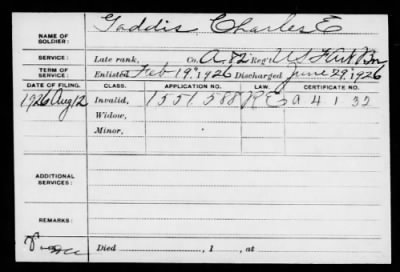 NAME OF SOLDIER: Gaddis, Charles E
SERVICE: Late rank, Co. A. 82 Reg't U S F Art Bn
TERM OF SERVICE: Enlisted Feb 19, 1926 Discharged June 29, 1926
DATE OF FILING. CLASS. APPLICATION NO. LAW. CERTIFICATE NO.
1926 Aug 12 Invalid, 1551588 A 4 1 32
Widow,
Minor,
ADDITIONAL SERVICES:
REMARKS:
Died , 1 , at